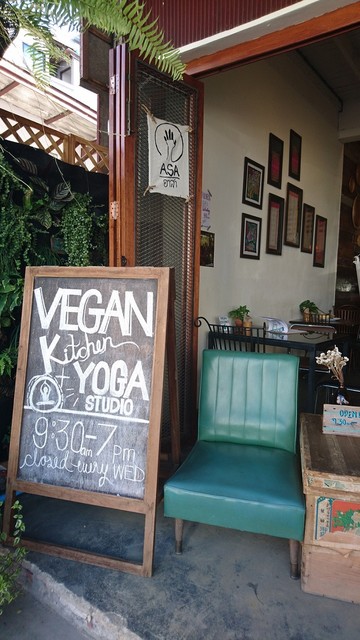 ASA
อาสา
VEGAN
Kitchen
+ YOGA
STUDIO
9:30am-7pm
closed every WED
OPEN